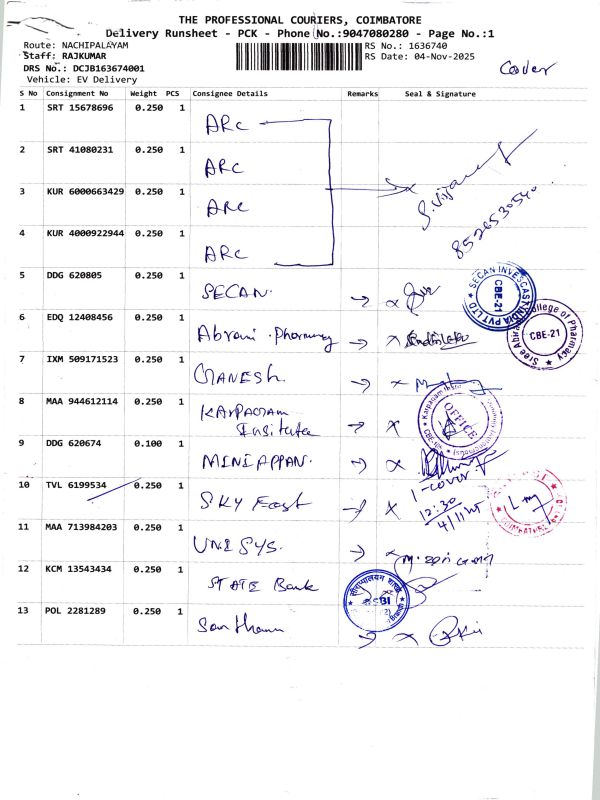 THE PROFESSIONAL COURIERS, COIMBATORE
Delivery Runsheet - PCK - Phone No.:9047080280 - Page No.:1
Route: NACHIPALAYAM
RS No.: 1636740
Staff: RAJKUMAR
RS Date: 04-Nov-2025
DRS No.: DCJB163674001
Vehicle: EV Delivery
Cover
S No Consignment No Weight PCS Consignee Details Remarks Seal & Signature
1 SRT 15678696 0.250 1 ARC
2 SRT 41080231 0.250 1 ARC
3 KUR 6000663429 0.250 1 ARC
4 KUR 4000922944 0.250 1 ARC
8526530540
5 DDG 620805 0.250 1 SECAN
SECAN INVESCAST INDIA PVT LTD
CBE-21
6 EDQ 12408456 0.250 1 Pharmacy
College of Pharmacy
CBE-21
7 IXM 509171523 0.250 1 GANESH
8 MAA 944612114 0.250 1 KARPAGAM
OFFICE
9 DDG 620674 0.100 1 MINIAPPAN
1-cover
12:30
10 TVL 6199534 0.250 1 SKY East
11 MAA 713984203 0.250 1 UNISYS
12 KCM 13543434 0.250 1 STATE Bank
SBI
13 POL 2281289 0.250 1